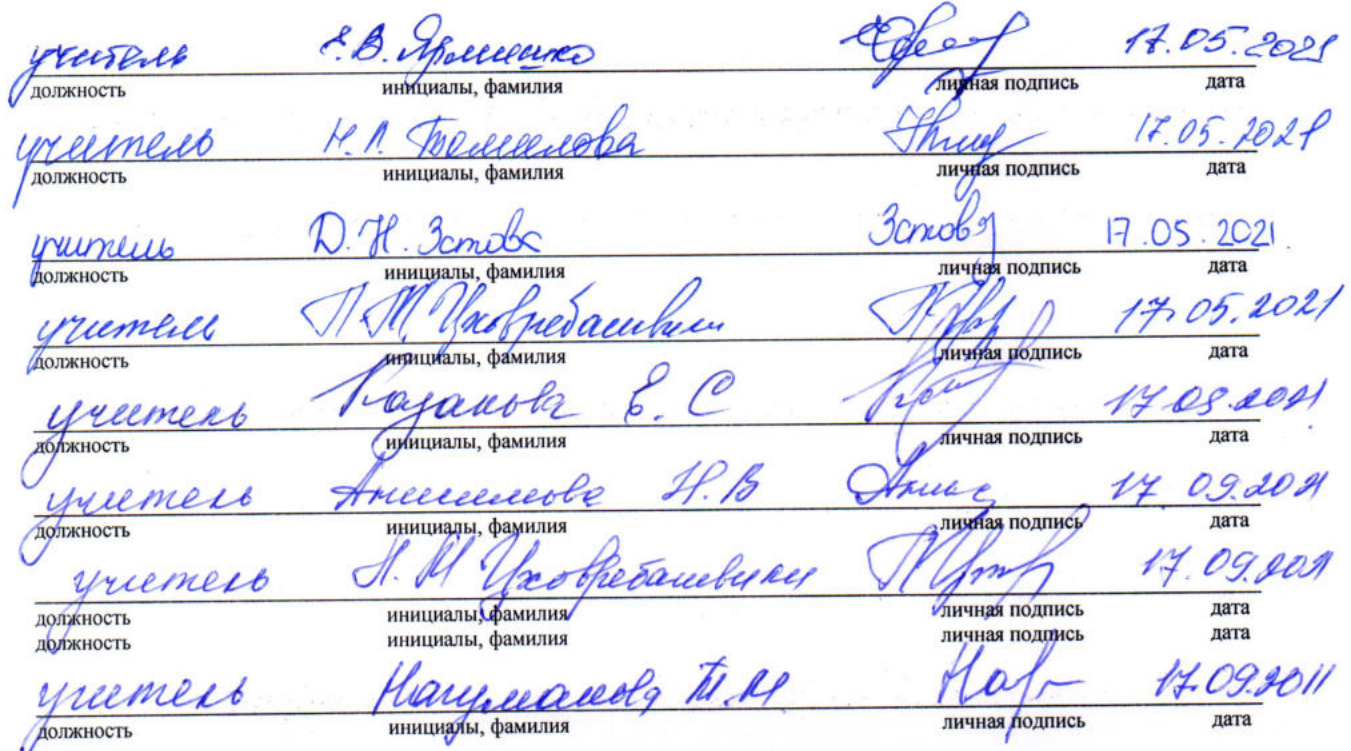 учитель Е.В. Ярмишко 17.05.2021
должность инициалы, фамилия личная подпись дата
учитель Н.Л. 17.05.2021
должность инициалы, фамилия личная подпись дата
учитель Д.Н. Зстова Зстова 17.05.2021.
должность инициалы, фамилия личная подпись дата
учитель П.М. Цховребашвили 17.05.2021
должность инициалы, фамилия личная подпись дата
учитель Казакова Е.С 17.09.2021
должность инициалы, фамилия личная подпись дата
учитель Анисимова Н.В 17.09.2021
должность инициалы, фамилия личная подпись дата
учитель П.М Цховребашвили 17.09.2021
должность инициалы, фамилия личная подпись дата
должность инициалы, фамилия личная подпись дата
учитель Нагуманова Т.М 17.09.2011
должность инициалы, фамилия личная подпись дата